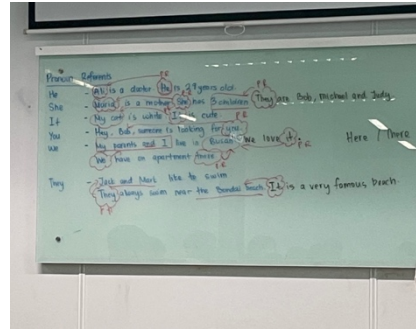 Pronoun Referents
P.R P.R
He - Ali is a doctor. He is 29 years old.
She - Maria is a mother. She has 3 children. They are Bob, Michael and Judy.
It - My cat is white. It is cute. P.R
You - Hey, Bob, someone is looking for you.
We - My parents and I live in . We love it. P.R Here / There
We have an apartment there.
P.R
They - Jack and Mark like to swim
They always swim near the Bondai beach. It is a very famous beach.
P.R